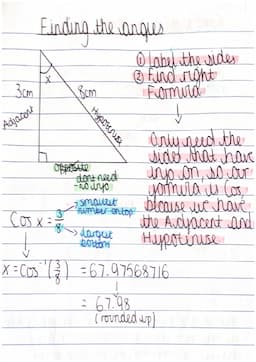 Finding the angles
① Label the sides
② Find right
Formula
x
3cm
8cm
Adjacent
Hypotinuse
opposite
dont need
-no info
Only need the
sides that have
info on, so our
formula is Cos
because we have
the Adjacent and
Hypotinuse
Cos x = 3/8
→ smallest
number on top
→ largest
bottom
x = Cos⁻¹(3/8) = 67.97568716
= 67.98
(rounded up)